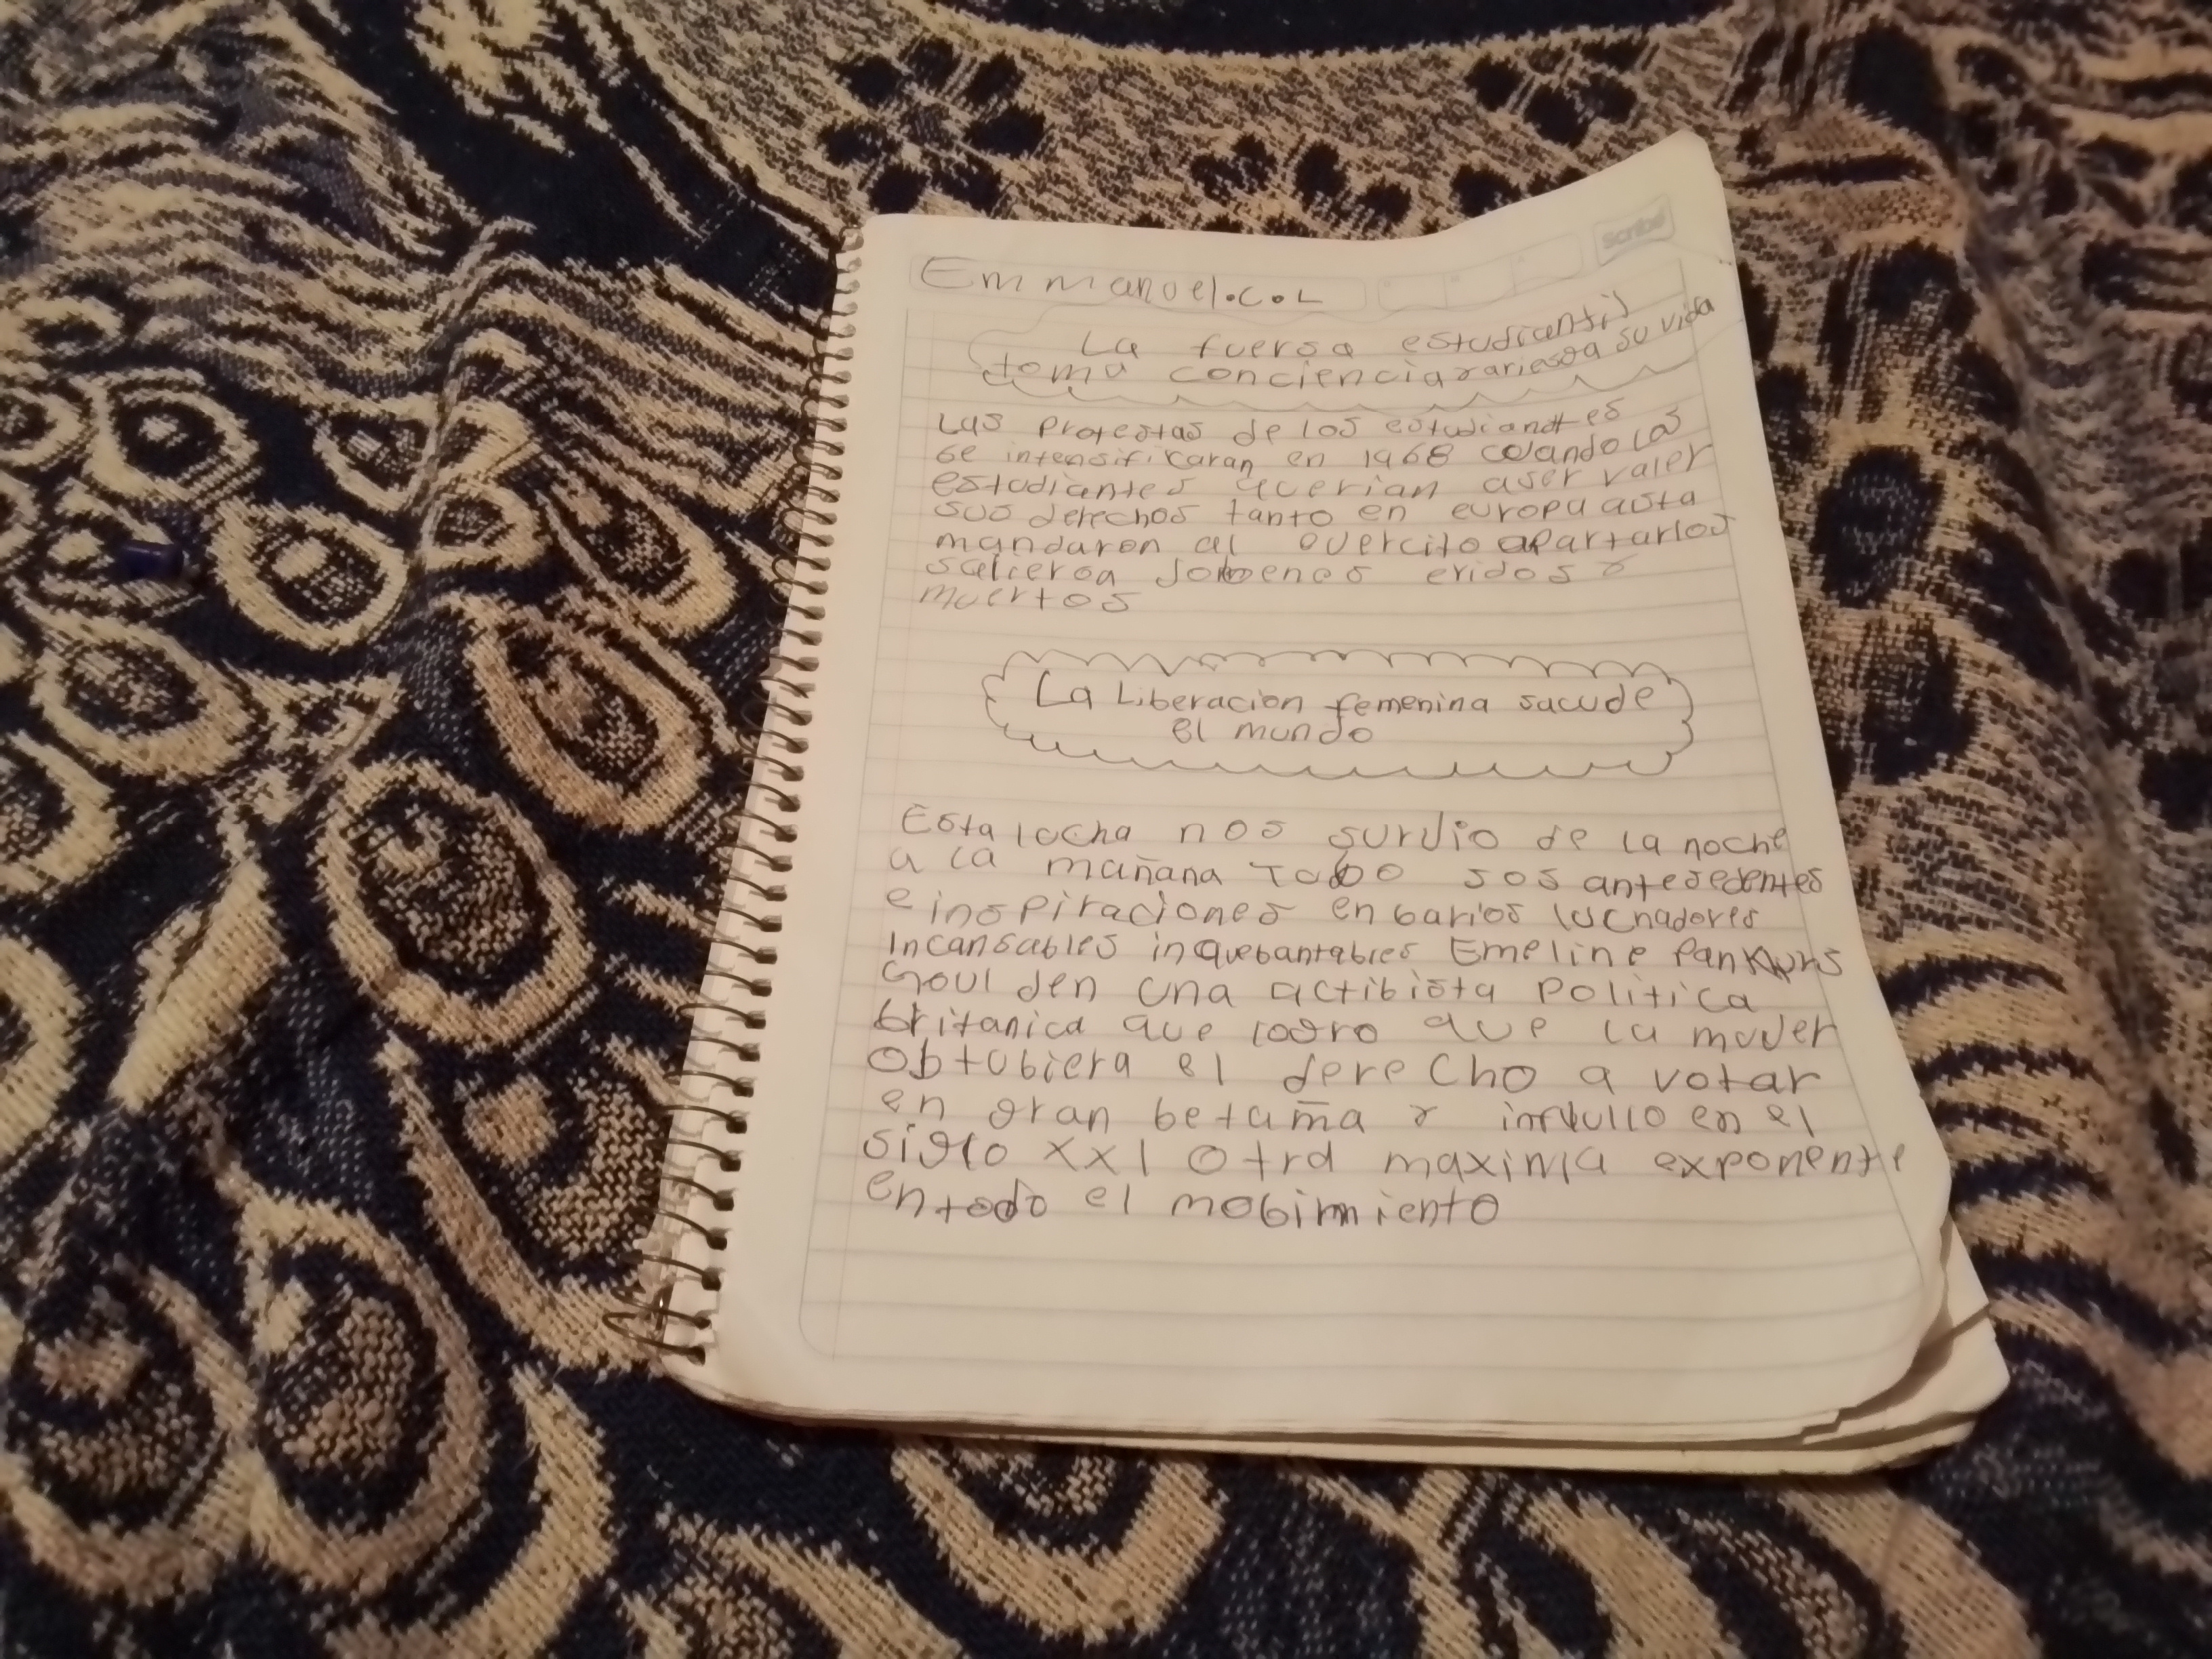 scribe
Emmanuel.C.L
La fuersa estudiantil
toma conciencia y ariesga su vida
Las protestas de los estudiantes
se intensificaran en 1968 cuando los
estudiantes querian aser valer
sus derechos tanto en europa asta
mandaron al evercito apartarlos
salieron Jobenes eridos y
muertos
La Liberacion femenina sacude
el mundo
Esta lucha nos surJio de la noche
a la mañana Tubo sos antesedentes
e inspiraciones en barios luchadores
Incansables inquebantables Emeline Pankurs
Goulden una actibista Politica
britanica que logro que la muJer
obtubiera el derecho a votar
en gran betaña y influllo en el
siglo XXI Otra maxinia exponente
en todo el mobimiento